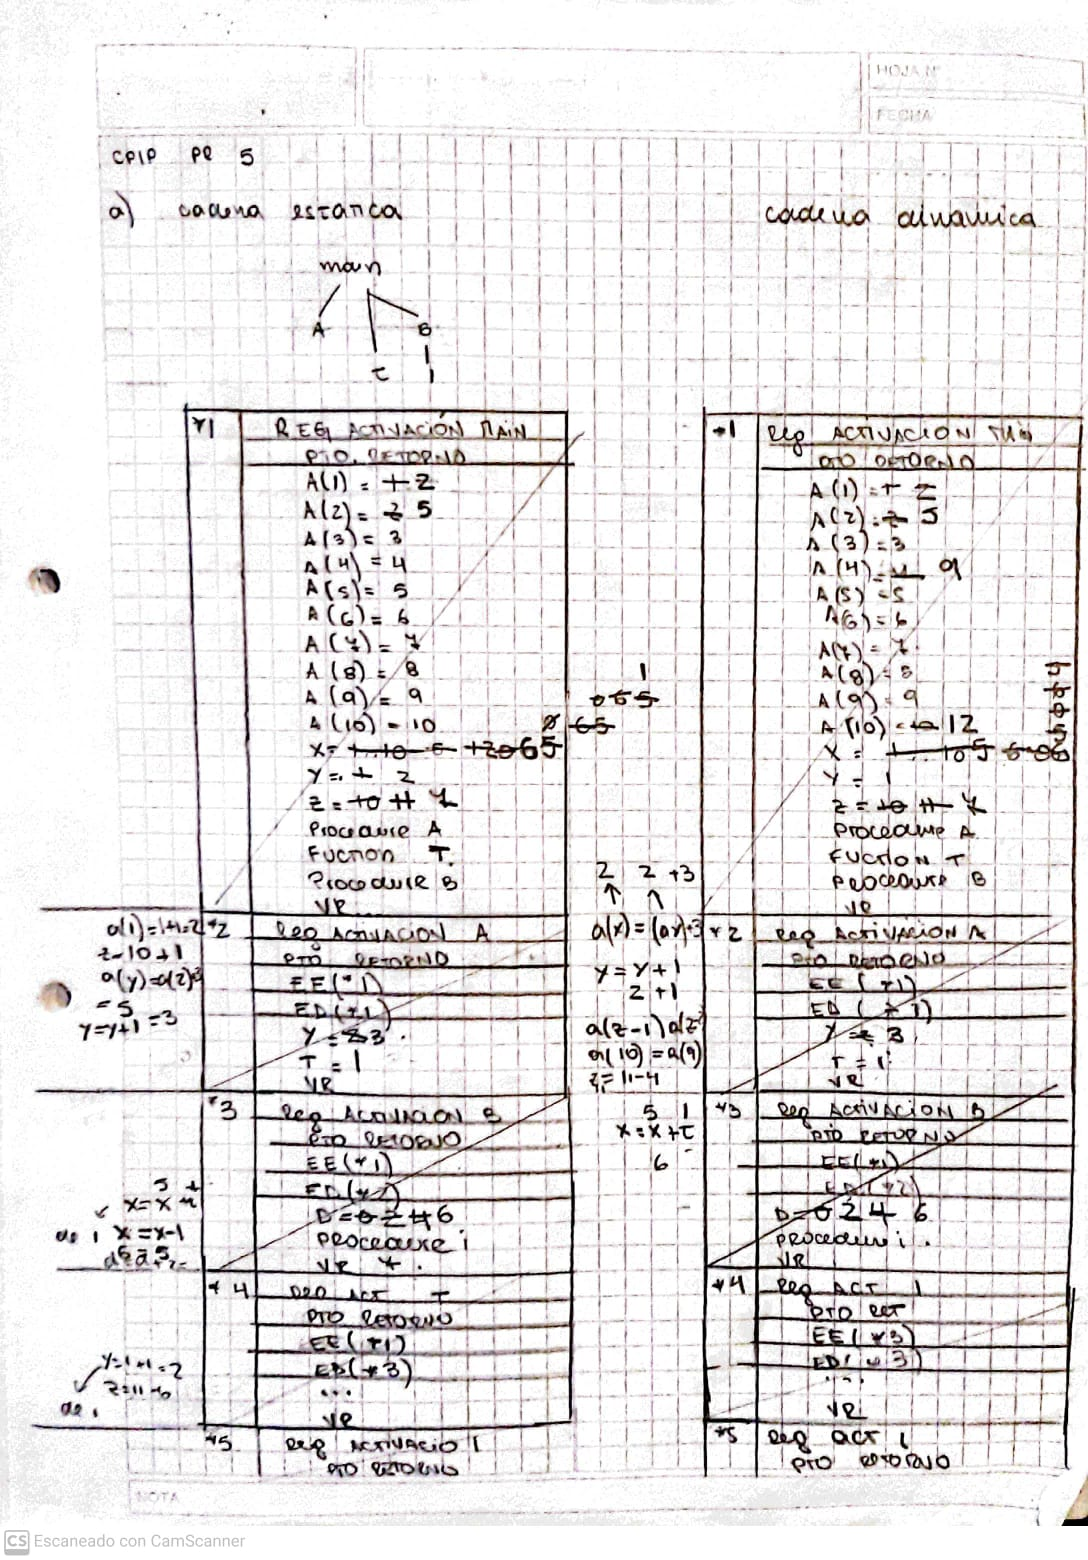 HOJA Nº
FECHA
CPIP PR 5
a) cadena estatica
cadena dinamica
main
A B
T I
*1 REG ACTIVACIÓN MAIN
PTO. RETORNO
A(1) = 1 2
A(2) = 2 5
A(3) = 3
A(4) = 4
A(5) = 5
A(6) = 6
A(7) = 7
A(8) = 8
A(9) = 9
A(10) = 10
Y = 1 2
Z = 10 11 7
Procedure A
Fuction T.
Procedure B
VR
*2 Reg ACTIVACION A
PTO RETORNO
EE(*1)
ED(*1)
T = 1
VR
a(1)=1+1=2
z=10+1
a(y)=a(2)+3
= 5
y=y+1=3
*3 Reg ACTIVACION B
PTO RETORNO
EE(*1)
ED(*2)
D=0 2 4 6
procedure i
VR
x=x-1
*4 Reg ACT T
PTO RETORNO
EE(*1)
ED(*3)
...
VR
y=1+1=2
*5 Reg ACTIVACIO I
PTO RETORNO
1
065
65
2 2 +3
a(x)=(ax)+3
y=y+1
2+1
a(10)=a(9)
z=11-4
5 1
x=x+T
6
*1 Reg ACTIVACION
PTO RETORNO
A(1)=1 2
A(2)=2 5
A(3)=3
A(4)=4 9
A(5)=5
A(6)=6
A(7)=7
A(8)=8
A(9)=9
A(10)=10 12
Y = 1
Z = 10 11 7
Procedure A
Fuction T
Procedure B
VR
*2 Reg ACTIVACION A
PTO RETORNO
EE(*1)
ED(*1)
Y=2 3
T=1
VR
*3 Reg ACTIVACION B
PTO RETORNO
EE(*1)
ED(*2)
D=0 2 4 6
procedure i.
VR
*4 Reg ACT I
PTO RET
EE(*3)
ED(*3)
...
VR
*5 Reg ACT I
PTO RETORNO
NOTA
CS Escaneado con CamScanner